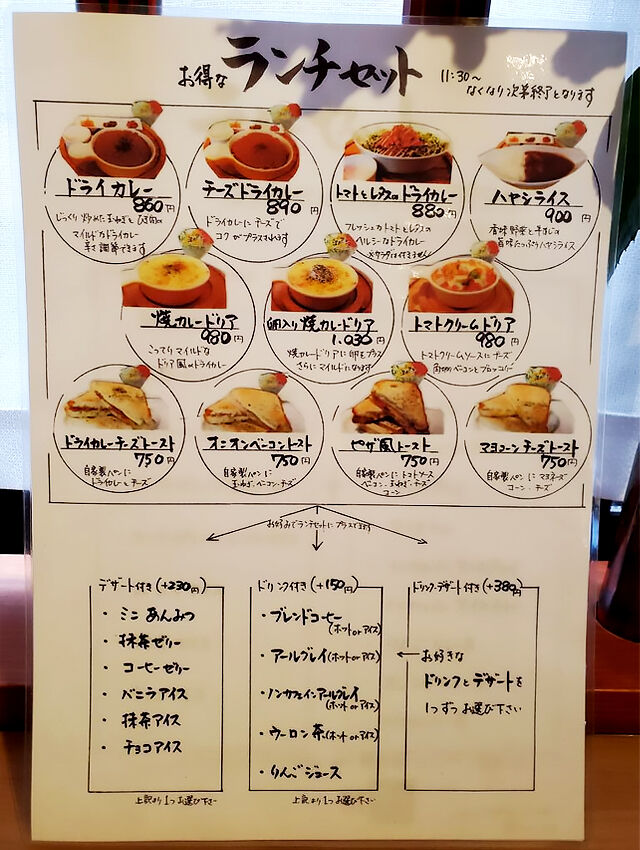 お得な ランチセット 11:30〜
なくなり次第終了となります
ドライカレー
860円
じっくり炒めた玉ねぎとひき肉の
マイルドなドライカレー
辛さ調節できます
チーズドライカレー
890円
ドライカレーにチーズで
コクがプラスされます
トマトとレタスのドライカレー
880円
フレッシュなトマトとレタスの
ヘルシーなドライカレー
※サラダは付きません
ハヤシライス
900円
香味野菜と牛すじの
旨味たっぷりハヤシライス
焼カレードリア
980円
こってりマイルドな
ドリア風のドライカレー
卵入り焼カレードリア
1,030円
焼カレードリアに卵をプラス
さらにマイルドになります
トマトクリームドリア
980円
トマトクリームソースにチーズ
角切りベーコンとブロッコリー
ドライカレーチーズトースト
750円
自家製パンに
ドライカレーとチーズ
オニオンベーコントースト
750円
自家製パンに
玉ねぎ・ベーコン・チーズ
ピザ風トースト
750円
自家製パンにトマトソース
ベーコン、玉ねぎ、チーズ
コーン
マヨコーンチーズトースト
750円
自家製パンにマヨネーズ
コーン・チーズ
お好みでランチセットにプラスできます
デザート付き(+230円)
・ミニあんみつ
・抹茶ゼリー
・コーヒーゼリー
・バニラアイス
・抹茶アイス
・チョコアイス
上記より1つお選び下さい
ドリンク付き(+150円)
・ブレンドコーヒー
(ホットorアイス)
・アールグレイ(ホットorアイス)
・ノンカフェインアールグレイ
(ホットorアイス)
・ウーロン茶(ホットorアイス)
・りんごジュース
上記より1つお選び下さい
ドリンク・デザート付き(+380円)
お好きな
ドリンクとデザートを
1つずつお選び下さい